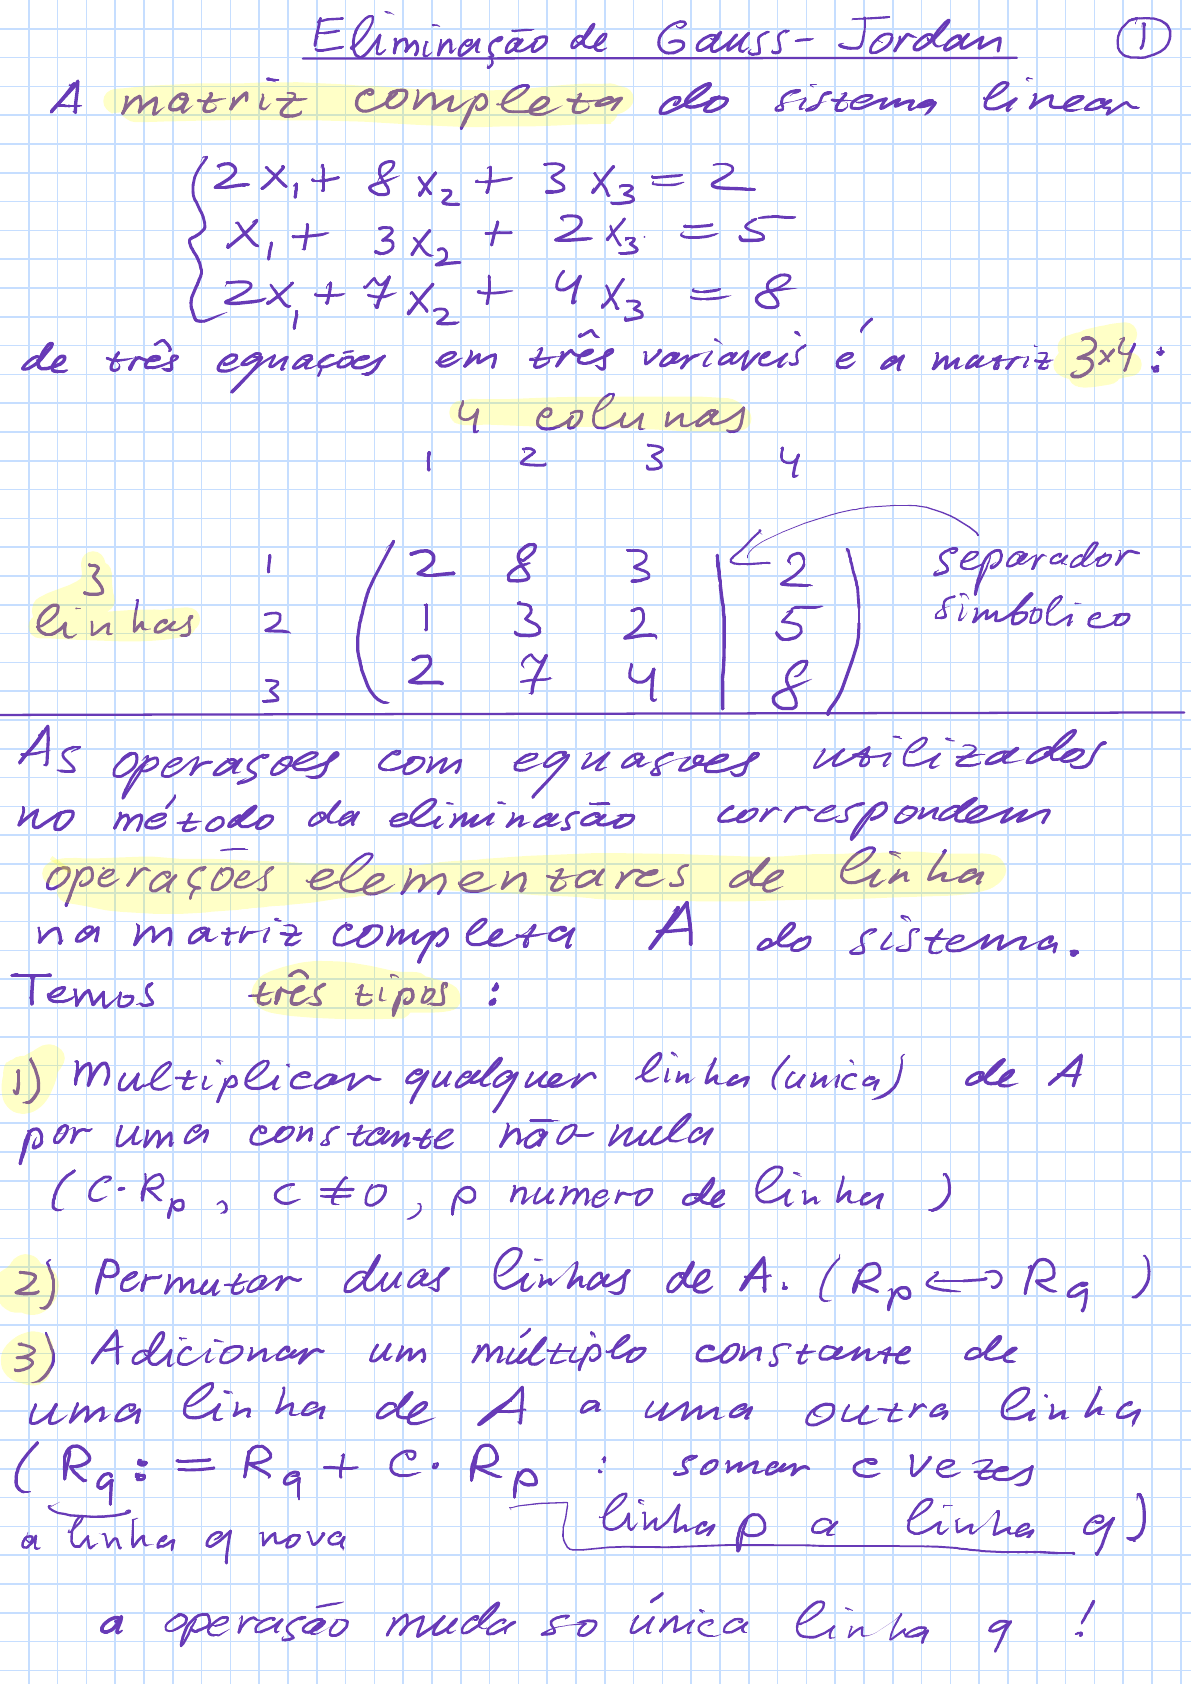 Eliminação de Gauss-Jordan ①
A matriz completa do sistema linear
2x₁ + 8x₂ + 3x₃ = 2
x₁ + 3x₂ + 2x₃ = 5
2x₁ + 7x₂ + 4x₃ = 8
de três equações em três variaveis é a matriz 3×4:
4 colunas
1 2 3 4
3 linhas
1 ( 2 8 3 | 2 )
2 ( 1 3 2 | 5 )
3 ( 2 7 4 | 8 )
separador
simbolico
As operaçoes com equasoes utilizados
no método da eliminasão correspondem
operações elementares de linha
na matriz completa A do sistema.
Temos três tipos:
1) Multiplicar qualquer linha (unica) de A
por uma constante não-nula
(C·Rp, c ≠ 0, p numero de linha)
2) Permutar duas linhas de A. (Rp ↔ Rq)
3) Adicionar um múltiplo constante de
uma linha de A a uma outra linha
(Rq := Rq + C·Rp : somar c vezes
linha p a linha q)
a linha q nova
a operasão muda so única linha q !